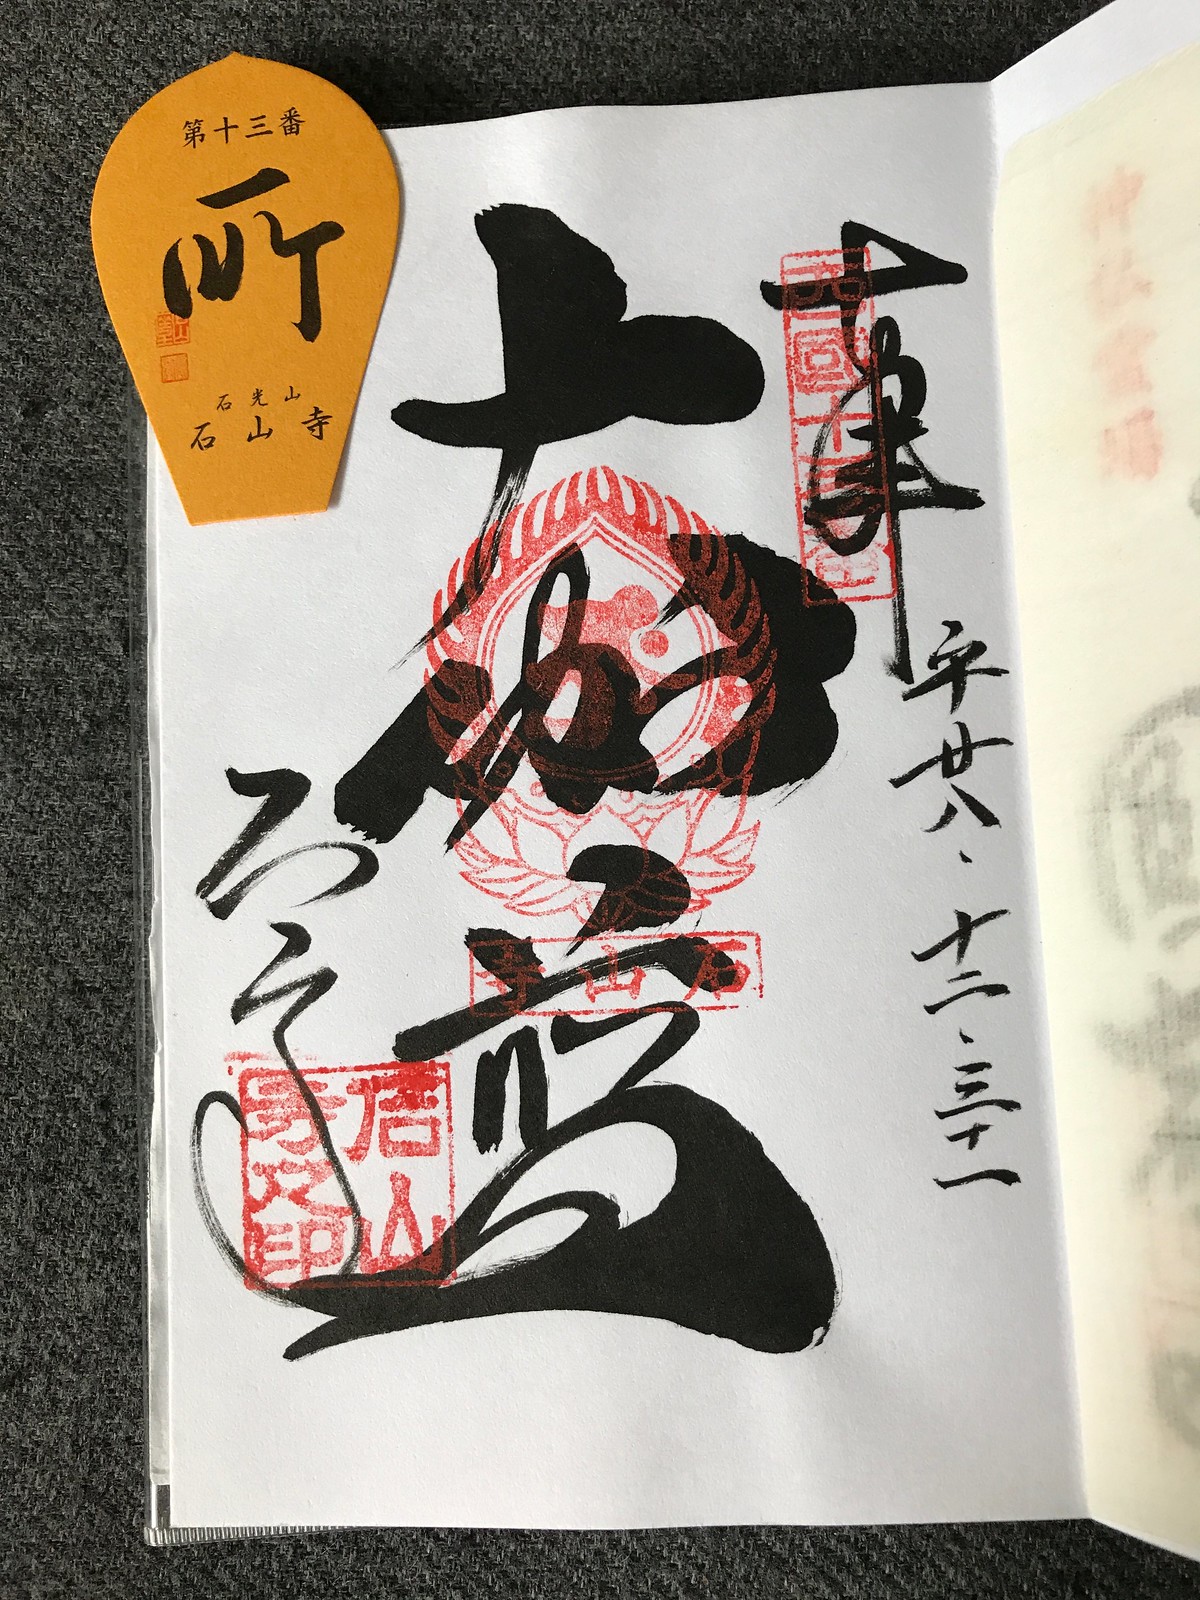 第十三番
所
石光山
石山寺
奉拝
西國十三番
平廿八・十二・三十一
大伽藍
石山寺
石山
寺之印